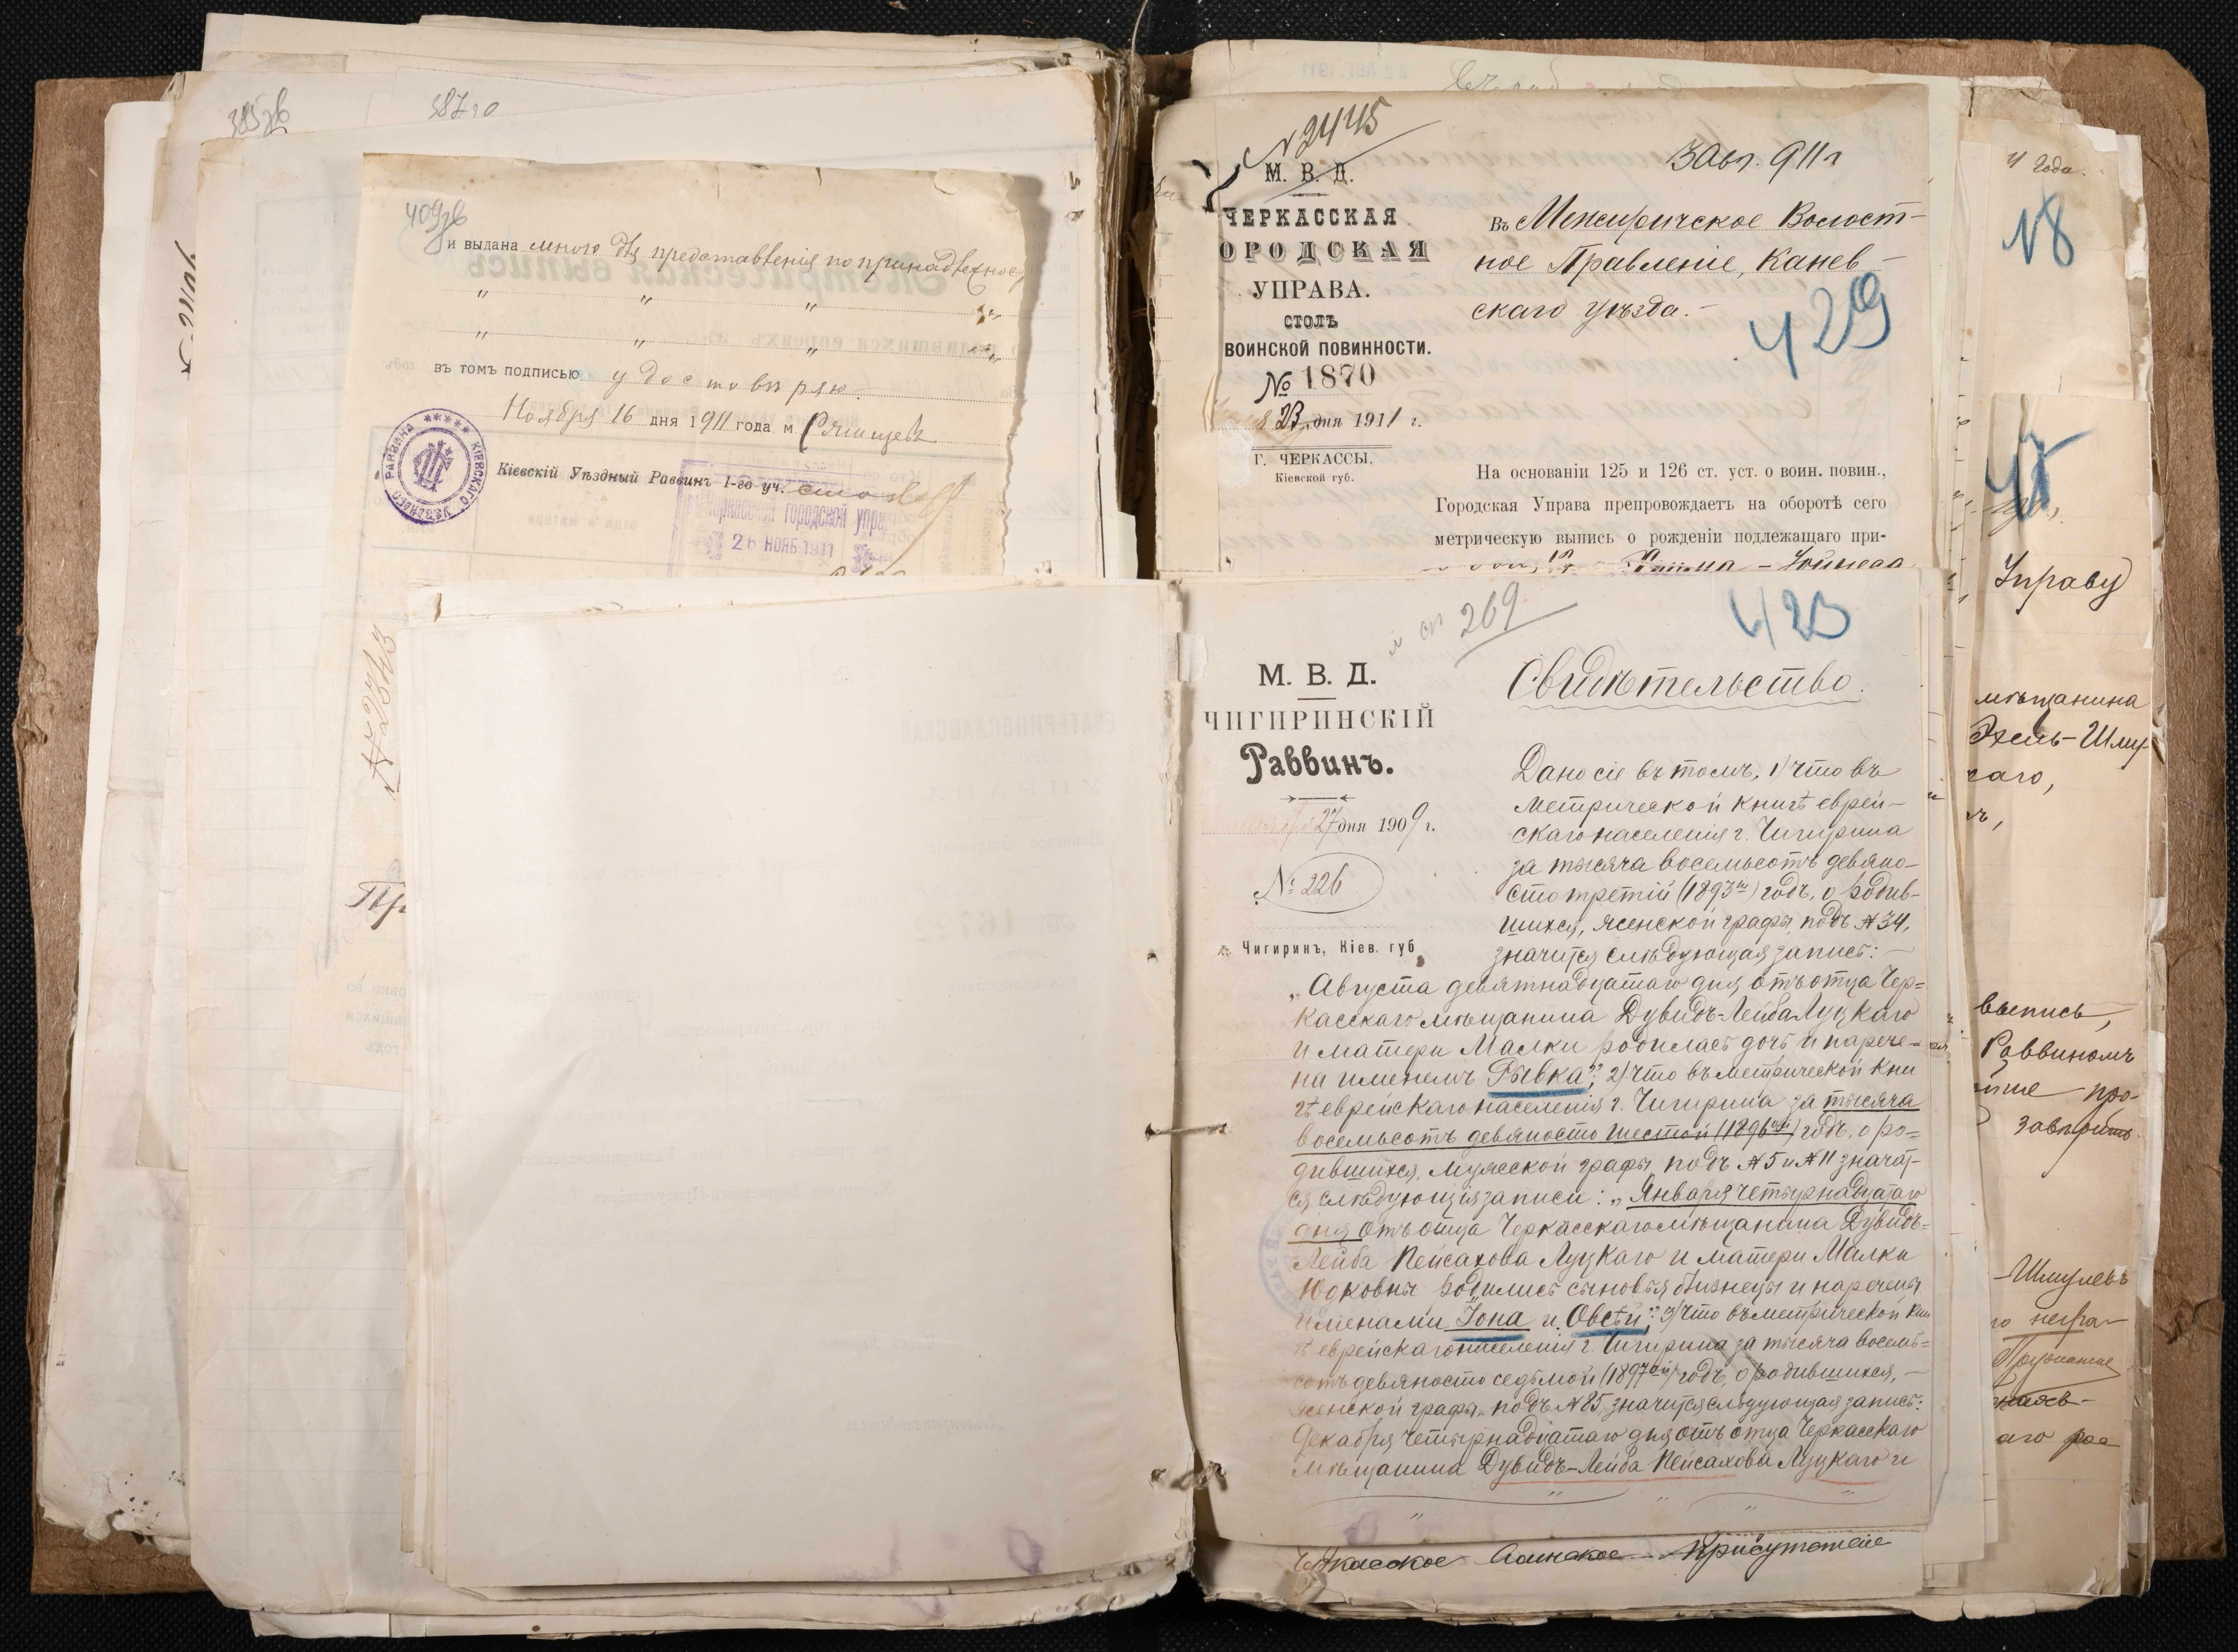 385 об
387 го
409 об
и выдана мною для представленія по принадлежнос
" " " "
" " " "
въ томъ подписью удостовѣряю.
Ноября 16 дня 1911 года м. Ржищевъ
КІЕВСКАГО УѢЗДНАГО РАВВИНА
Кіевскій Уѣздный Раввинъ 1-го уч.
Черкасской городской упра
26 НОЯБ 1911
№ 2845
№ 2445
М. В. Д.
ЧЕРКАССКАЯ
ОРОДСКАЯ
УПРАВА.
СТОЛЪ
ВОИНСКОЙ ПОВИННОСТИ.
№ 1870
23 дня 1911 г.
Г. ЧЕРКАССЫ,
Кіевской губ.
3 Авг. 911 г
Въ Межиричское Волост-
ное Правленіе, Канев-
скаго уѣзда.-
429
На основаніи 125 и 126 ст. уст. о воин. повин.,
Городская Управа препровождаетъ на оборотѣ сего
метрическую вынись о рожденіи подлежащаго при-
269
423
М. В. Д.
ЧИГИРИНСКІЙ
Раввинъ.
27 дня 1909 г.
№ 226
г. Чигиринъ, Кіев. губ.
Свидѣтельство.
Дано сіе въ томъ, 1) что въ
метрической книгѣ еврей-
скаго населенія г. Чигирина
за тысяча восемьсотъ девяно-
сто третій (1893ій) годъ, о родив-
шихся, женской графы, подъ №34,
значится слѣдующая запись: -
„Августа девятнадцатаго дня, отъ отца Чер=
касскаго мѣщанина Дувидъ-Лейба Луцкаго
и матери Малки родилась дочь и нарече=
на именемъ Рывка"; 2) что въ метрической кни
гѣ еврейскаго населенія г. Чигирина за тысяча
восемьсотъ девяносто шестой (1896ой) годъ, о ро=
дившихся, мужеской графы, подъ №5 и №11 значат-
ся слѣдующія записи: „Января четырнадцатаго
дня отъ отца Черкасскаго мѣщанина Дувидъ=
Лейба Пейсахова Луцкаго и матери Малки
Юдковны родились сыновья близнецы и наречены
именами Іона и Овсѣй"; 3) что въ метрической кни
гѣ еврейскаго населенія г. Чигирина за тысяча восемь=
сотъ девяносто седьмой (1897ой) годъ, о родившихся, -
женской графы, подъ №85, значится слѣдующая запись:
Декабря четырнадцатаго дня, отъ отца Черкасскаго
мѣщанина Дувидъ-Лейба Пейсахова Луцкаго и
Черкасское Воинское Присутствіе
11 года.
Управу
мѣщанина
каго,
выпись,
Раввиномъ
про-
завѣрить
Шмулевъ
аго